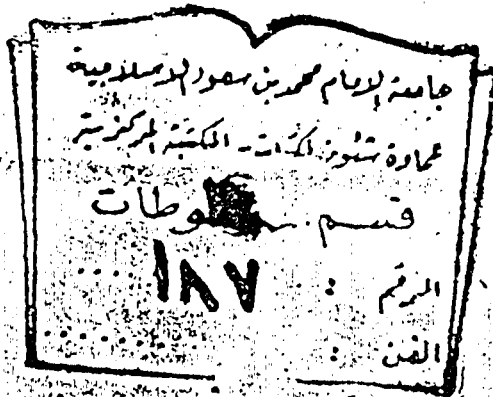 جامعة الإمام محمد بن سعود الإسلامية
عمادة شئون المكتبات - المكتبة المركزية
قسم وطات
الرقم : ١٨٧
الفن :